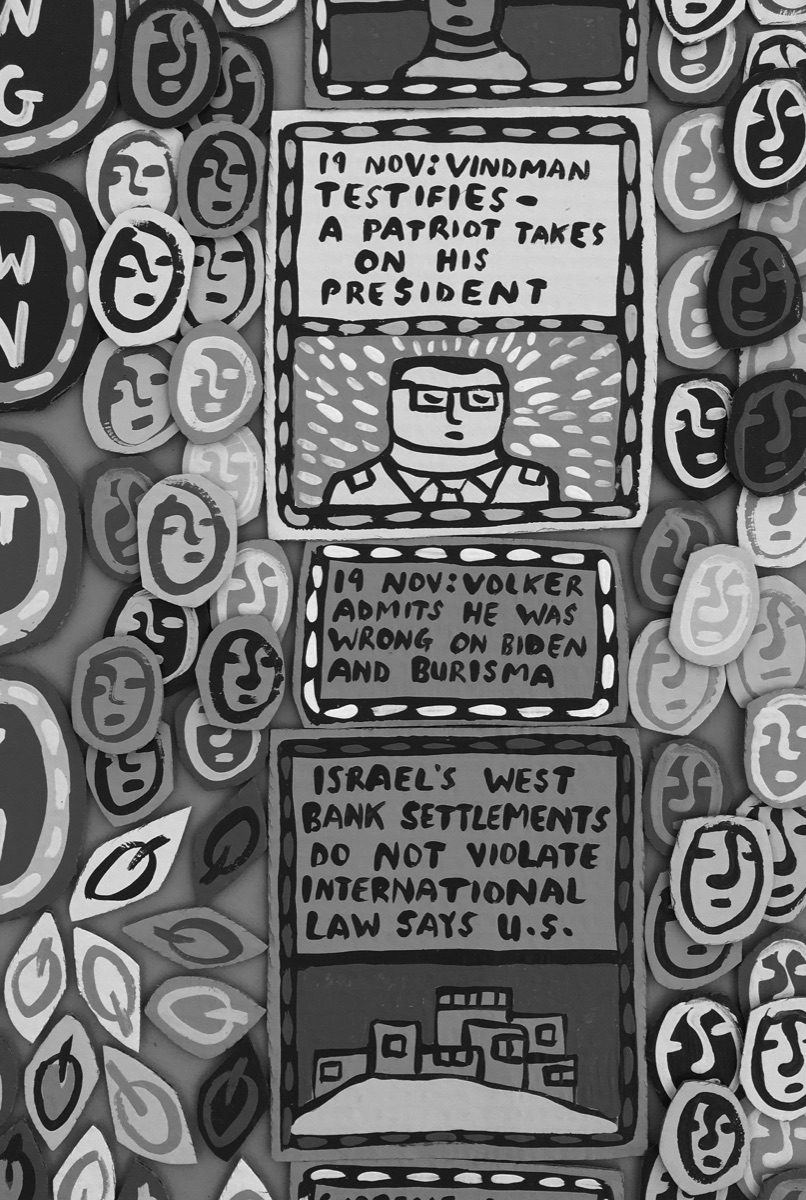 N
G
W
N
T
19 NOV: VINDMAN
TESTIFIES -
A PATRIOT TAKES
ON HIS
PRESIDENT
19 NOV: VOLKER
ADMITS HE WAS
WRONG ON BIDEN
AND BURISMA
ISRAEL'S WEST
BANK SETTLEMENTS
DO NOT VIOLATE
INTERNATIONAL
LAW SAYS U.S.